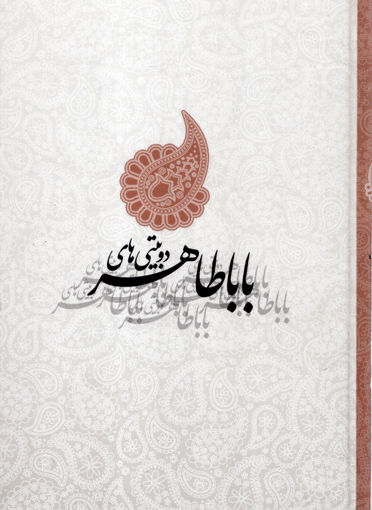 دوبیتی های
باباطاهر